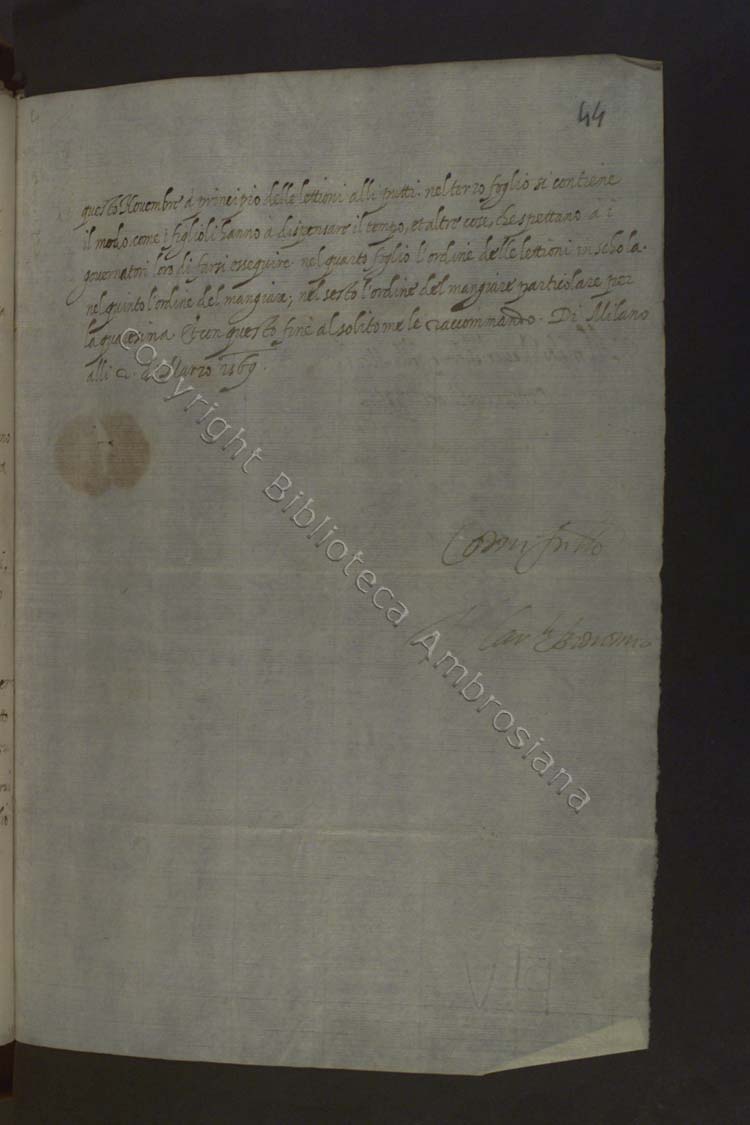 44
questo Novembre à principio delle lettioni alli putti. nel terzo foglio si contiene
il modo, come i figlioli hanno à dispensare il tempo, et altre cose, che spettano a i
governatori loro di farsi esseguire nel quarto foglio l'ordine delle lettioni in schola.
nel quinto l'ordine del mangiare; nel sesto l'ordine del mangiare particolare per
la quaresima Et con questo fine al solito me le raccommando. Di Milano
alli di Marzo 1569.
Come frello
Il Car.le Borromeo
Copyright Biblioteca Ambrosiana